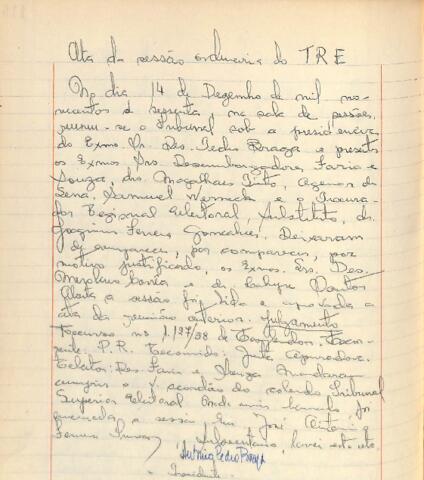 Ata da sessão ordinaria do TRE
No dia 14 de Dezembro de mil no-
vecentos e sessenta na sala de sessões,
reuniu-se o Tribunal sob a presidencia
do Exmo. Sr. Des. Pedro Braga e presentes
os Exmos. Srs. Desembargadores Faria e
Souza, drs. Magalhães Pinto, Agenor de
Sena, Samuel Werneck e o Procura-
dor Regional Eleitoral, Substituto, dr.
Joaquim Ferreira Gonçalves. Deixaram
de comparecer, por
motivo justificado, os Exmos. Srs. Des.
e dr. Santos
a sessão foi lida e aprovada a
ata da reunião anterior. Julgamento
Recurso no 127/38 de Recor-
rente: P.R. Recorrido: Junta Apuradora.
Relator: Des. Faria e Souza. Mandaram
cumprir o V. acordão do colendo Tribunal
Superior Eleitoral. Nada mais havendo, foi
encerrada a sessão. Eu, José
lavrei esta ata
Antonio Pedro Braga
Presidente